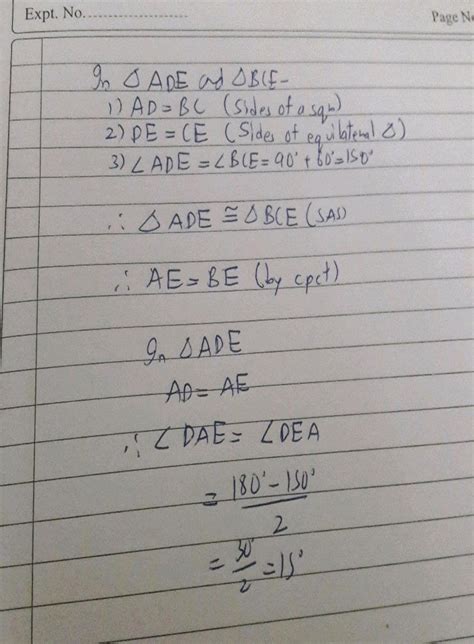 Expt. No.
Page N
In △ ADE and △BCE-
1) AD=BC (Sides of a sqr)
2) DE = CE (Sides of equilateral △)
3) ∠ADE = ∠BCE = 90° + 60° = 150°
∴ △ADE ≅ △BCE (SAS)
∴ AE = BE (by cpct)
In △ADE
AD = AE
∴ ∠DAE = ∠DEA
= 180° - 150°
2
= 30° = 15°
2